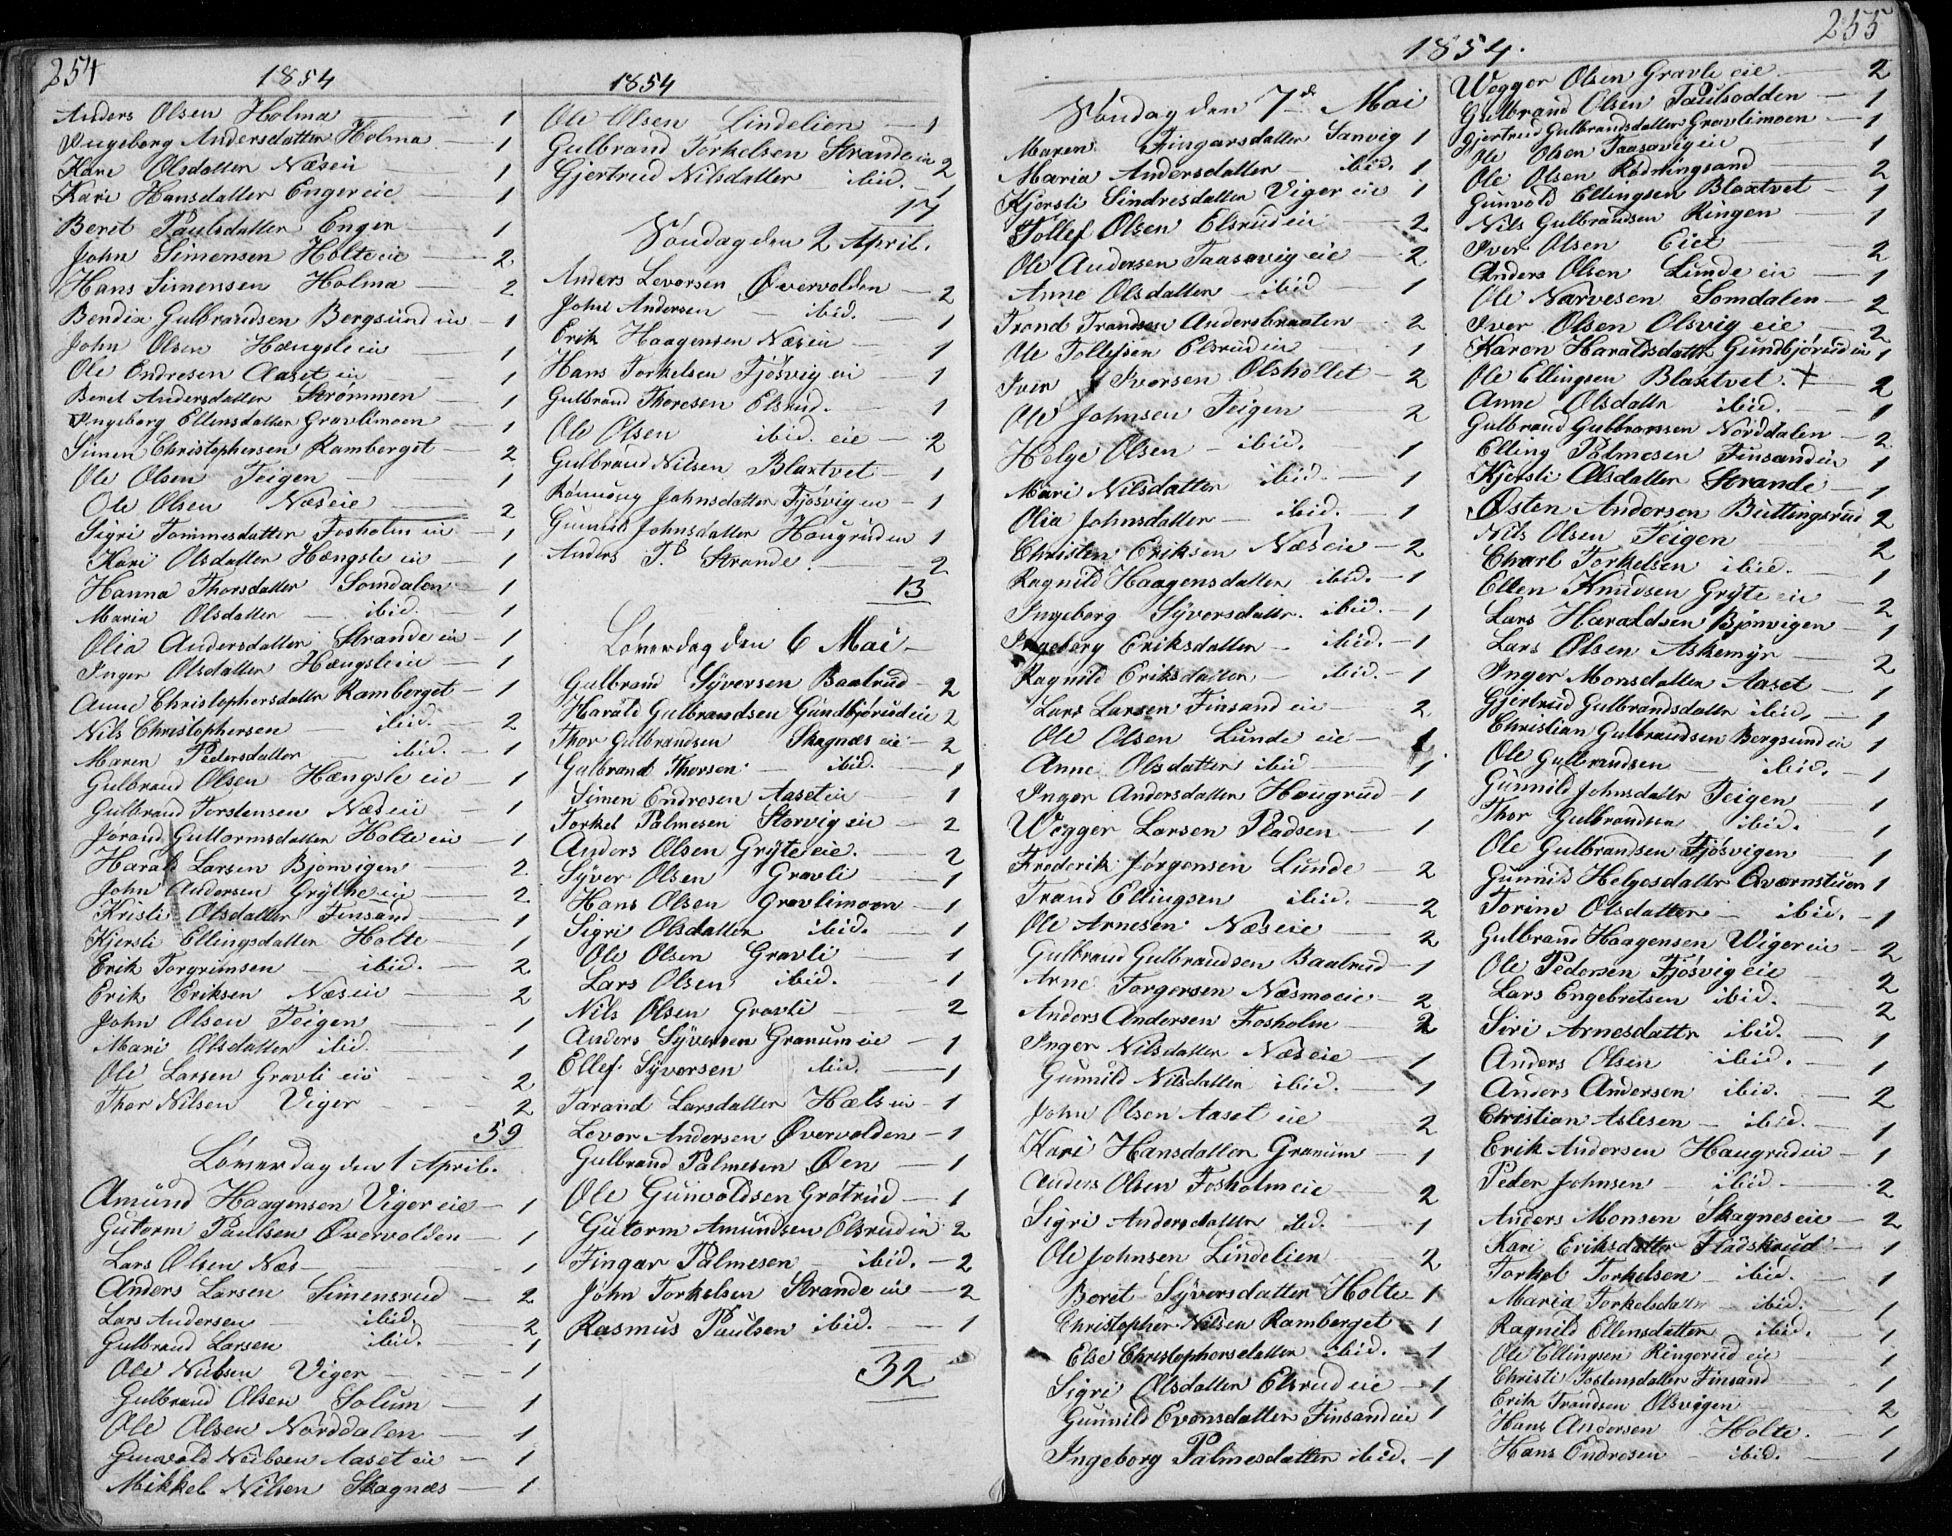 254
1854
Anders Olsen Holma 1
Ingeborg Andersdatter Holma 1
Kari Olsdatter Næseie 1
Kari Hansdatter Enger eie 1
Beret Paulsdatter Enger 1
John Simensen Holte eie 2
Hans Simensen Holma 2
Bendix Gulbrandsen Bergsund eie 1
John Olsen Hængsle eie 1
Ole Endresen Aaset eie 1
Beret Andersdatter Strømmen 1
Ingeborg Ellensdatter Gravlimoen 1
Simen Christophersen Ramberget 2
Ole Olsen Teigen 1
Ole Olsen Næseie 2
Sigri Tommesdatter Fosholm eie 1
Kari Olsdatter Hængsle eie 1
Hanna Thorsdatter Somdalen 1
Maria Olsdatter ibid. 1
Olia Andersdatter Strande eie 1
Inger Olsdatter Hængsleeie 1
Anne Christophersdatter Ramberget 1
Nils Christophersen ibid. 2
Maren Pedersdatter ibid. 1
Gulbrand Olsen Hængsle eie 1
Gulbrand Torstensen Næseie 1
Jorand Guttormsdatter Holte eie 1
Harald Larsen Bjonvigen 2
John Andersen Grythe eie 2
Kristi Olsdatter Finsand 1
Kjersti Ellingsdatter Holte 1
Erik Torgrimsen ibid. 2
Erik Eriksen Næseie 2
John Olsen Teigen 1
Mari Olsdatter ibid. 1
Ole Larsen Gravli eie 2
Thor Nilsen Viger 2
59
Løverdag den 1 April.
Amund Haagensen Viger eie 1
Gutorm Paulsen Øvervolden 1
Lars Olsen Næs 1
Anders Larsen Simensrud 2
Lars Andersen ibid. 2
Gulbrand Larsen ibid. 1
Ole Nilsen Viger 1
Gulbrand Olsen Solum 1
Ole Olsen Norddalen 1
Gunvald Neilsen Aaset eie 1
Mikkel Nilsen Skagnæs 1
1854
Ole Olsen Lindelien 1
Gulbrand Torkelsen Strande eie 2
Gjertrud Nilsdatter ibid. 1
17
Søndag den 2 April.
Anders Levorsen Øvervolden 2
John Andersen ibid. 1
Erik Haagensen Næseie 1
Hans Torkelsen Fjösvig eie 1
Gulbrand Thoresen Elsrud. 1
Ole Olsen ibid. eie 2
Gulbrand Nilsen Blaxtvet 1
Rönnaug Johnsdatter Fjösvig eie 1
Gunnild Johnsdatter Haugrud eie 1
Anders T. Strande. 2
13
Løverdag den 6 Mai
Gulbrand Syversen Baalrud 2
Harald Gulbrandsen Gundbjørud eie 2
Thor Gulbrandsen Skagnæs eie 2
Gulbrand Thorsen ibid. 1
Simen Endresen Aaset eie 1
Torkel Palmesen Storvig eie 2
Anders Olsen Gryte eie. 2
Syver Olsen Gravli 1
Hans Olsen Gravlimoen 1
Sigri Olsdatter ibid. 1
Ole Olsen Gravli 1
Lars Olsen ibid. 1
Nils Olsen Gravli 2
Anders Syversen Granum eie 1
Ellef Syversen ibid. 1
Tarand Larsdatter Hæls eie 1
Levor Andersen Øvervolden 1
Gulbrand Palmesen Øen 1
Ole Gunvoldsen Grøtrud 1
Gutorm Amundsen Elsrud eie 2
Fingar Palmesen ibid. 2
John Torkelsen Strande eie 2
Rasmus Paulsen ibid. 1
32
255
1854.
Søndag den 7de Mai
Maren Fingarsdatter Sanvig 1
Maria Andersdatter ibid. 1
Kjersti Sindresdatter Viger eie 1
Tollef Olsen Elsrud eie 2
Ole Andersen Taasavig eie 2
Anne Olsdatter ibid 1
Trond Trondsen Andersbraaten 2
Ole Tollefsen Elsrud eie 1
Iver Iversen Olshollet 2
Ole Johnsen Teigen 2
Helge Olsen ibid. 1
Mari Nilsdatter ibid. 1
Olia Johnsdatter ibid. 1
Christen Eriksen Næseie 2
Ragnild Haagensdatter ibid. 1
Ingeborg Syversdatter. ibid. 1
Ingeborg Eriksdatter ibid. 1
Ragnild Eriksdatter ibid. 1
Lars Larsen Finsand eie 2
Ole Olsen Lunde eie 1
Anne Olsdatter ibid 1
Inger Andersdatter Haugrud 1
Wegger Larsen Pladsen 1
Frederik Jørgensen Lunde 2
Trand Ellingsen ibid. 2
Ole Arnesen Næseie 2
Gulbrand Gulbrandsen Baalrud 1
Arne Torgersen Næsmoeie 2
Anders Andersen Fosholm 2
Inger Nilsdatter Næseie 1
Gunnild Nilsdatter ibid. 1
John Olsen Aaset eie 2
Kari Hansdatter Granum 1
Anders Olsen Fosholm eie 2
Sigri Andersdatter ibd. 1
Ole Johnsen Lindelien 2
Beret Syversdatter Holte 1
Christopher Nilsen Ramberget 1
Else Christophersdatter ibid. 1
Sigri Olsdatter Elsrud eie 1
Gunnild Evensdatter Finsand eie 1
Ingeborg Palmesdatter ibid. 1
Wegger Olsen Gravli eie 2
Gulbrand Olsen Paulsodden 1
Gjertrud Gulbrandsdatter Gravlimoen 1
Ole Olsen Taasavig eie 1
Ole Olsen Rødningsand 2
Gunvold Ellingsen Blaxtvet 1
Nils Gulbrandsen Ringen 1
Iver Olsen Eiet 2
Anders Olsen Lunde eie 1
Ole Narvesen Somdalen 2
Iver Olsen Olsvig eie 2
Karen Haraldsdatter Gundbjørud eie 1
Ole Ellingsen Blaxtvet. + 2
Anne Olsdattr ibid. 1
Gulbrand Gulbransen Norddalen 2
Elling Palmesen Finsand eie 1
Kjersti Olsdatter Strande 1
Østen Andersen Buttingsrud 2
Nils Olsen Teigen 2
Charl Torkelsen ibid. 1
Ellen Knudsen Gryte eie 2
Lars Haraldsen Bjønvigen 1
Lars Olsen Askemyr 2
Inger Monsdatter Aaset 1
Gjertrud Gulbrandsdattr ibid. 1
Christian Gulbrandsen Bergsund eie 1
Ole Gulbrandsen ibid. 1
Gunnild Johnsdattr Teigen 1
Thor Gulbrandsen ibid. 1
Ole Gulbrandsen Fjösvigen 1
Gunnild Helgesdatter Qværnstuen 1
Torine Olsdatter ibid. 1
Gulbrand Haagensen Wiger eie 2
Ole Pedersen Fjösvig eie 2
Lars Engebretsen ibid. 2
Siri Arnesdattr ibid. 1
Anders Olsen ibid. 1
Anders Andersen ibid. 2
Christian Aslesen ibid. 1
Erik Andersen Haugrud eie 1
Peder Johnsen ibid 2
Anders Monsen Skagnes eie 2
Kari Eriksdatter Fladskrud 1
Torkel Torkelsen ibid. 1
Maria Torkelsdattr ibid. 1
Ragnild Ellensdatter ibid. 1
Ole Ellingsen Ringerud eie 1
Christi Tostensdatter Finsand 1
Erik Trondsen Olsvigen 2
Hans Andersen Holte. 1
Hans Endresen ibid. 1